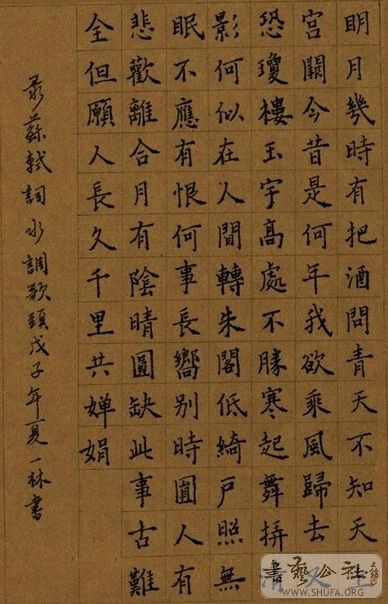 明月幾時有把酒問青天不知天上
宮闕今昔是何年我欲乘風歸去又
恐瓊樓玉宇高處不勝寒起舞挵清
影何似在人間轉朱閣低綺戶照無
眠不應有恨何事長嚮别時圓人有
悲歡離合月有陰晴圓缺此事古難
全但願人長久千里共嬋娟
录蘇軾詞水調歌頭戊子年夏一林書
書藝公社
WWW.SHUFA.ORG